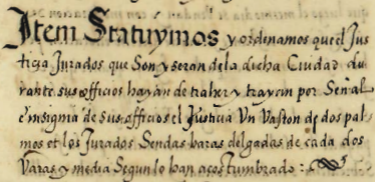 Item Statuymos y ordenamos quel Jus
ticia Jurados que son y seran dela dicha Ciudad du
rante sus officios hayan de traher y trayan por Señal
é insignia de sus officios el Justicia Un Vaston de dos pal
mos et los Jurados Sendas baras delgadas de cada dos
Varas y media Segun lo han acostumbrado: